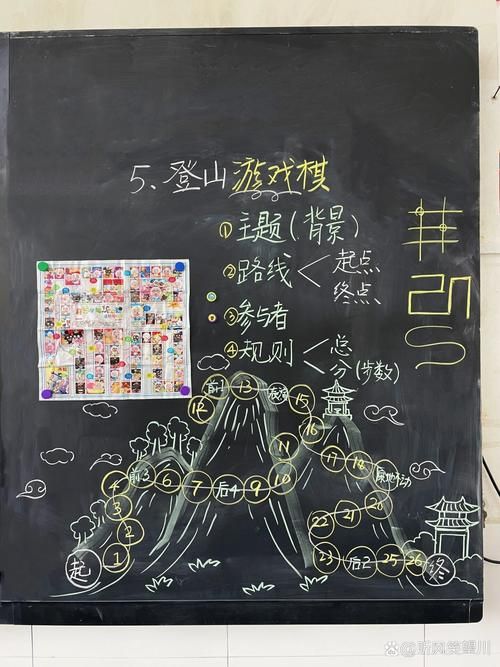 5、登山游戏棋
①主题(背景)
②路线<起点
终点
③参与者
④规则<总
分(步数)
前1 13 15
12 16
11 17 18 原地不动
4 前3 6 7 后4 9 10 20
3 22 21
2 23 后2 25 26 终
起 1